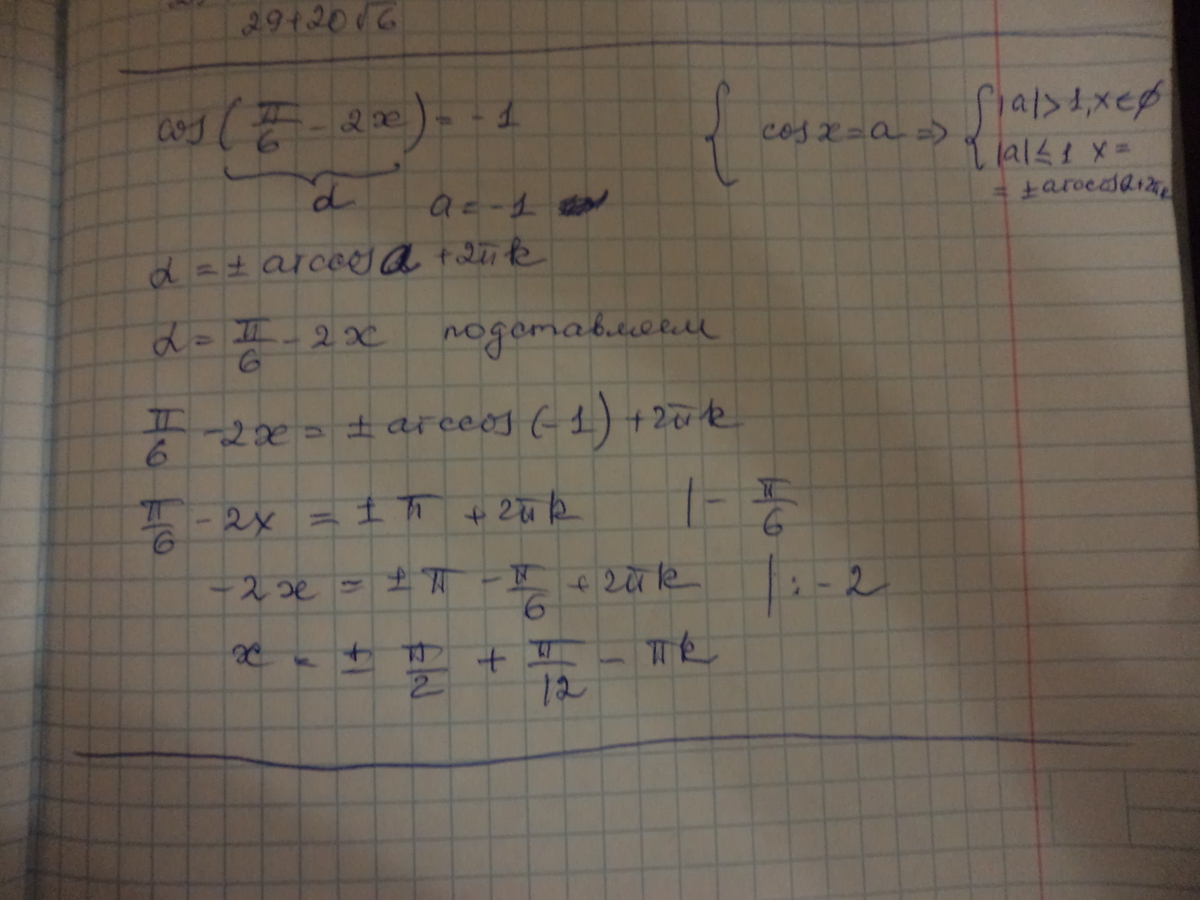 29+20√6
cos(π/6 - 2x) = -1
α a = -1
{ cosx = a => { |a|>1, x∈∅
|a|≤1 x =
= ± arccosa+2πk
α = ± arccosa + 2πk
α = π/6 - 2x подставляем
π/6 - 2x = ± arccos(-1) + 2πk
π/6 - 2x = ± π + 2πk | - π/6
-2x = ± π - π/6 + 2πk | : -2
x = ± π/2 + π/12 - πk